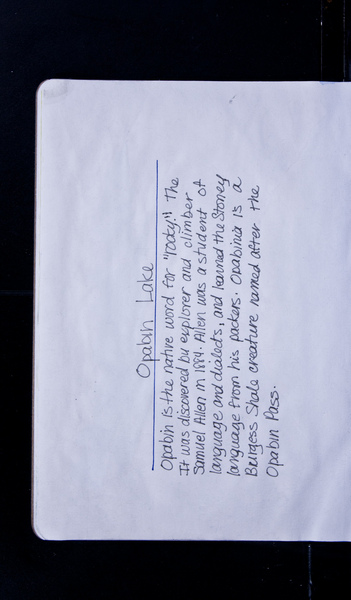 Opabin Lake
Opabin is the native word for "rocky." The
It was discovered by explorer and climber
Samuel Allen in 1894. Allen was a student of
language and dialects, and learned the Stoney
language from his packers. Opabinia is a
Burgess Shale creature named after the
Opabin Pass.